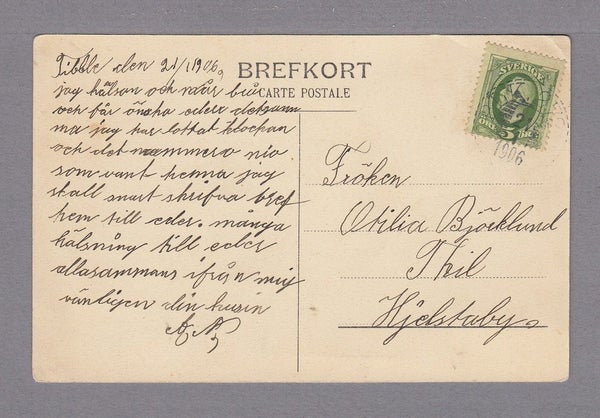 Tibble den 21/1 1906.
BREFKORT
CARTE POSTALE
jag hälsan och mår bra
och får önska eder detsam
ma jag har lottat klockan
och det nummero nio
som vant henna jag
skall snart skrifva bref
hem till eder. många
hälsning till eder
allasammans ifrån mig
vänligen din kusin
SVERIGE
5
ÖRE
1906
Fröken
Otilia Björklund
Thil
Hjelstaby